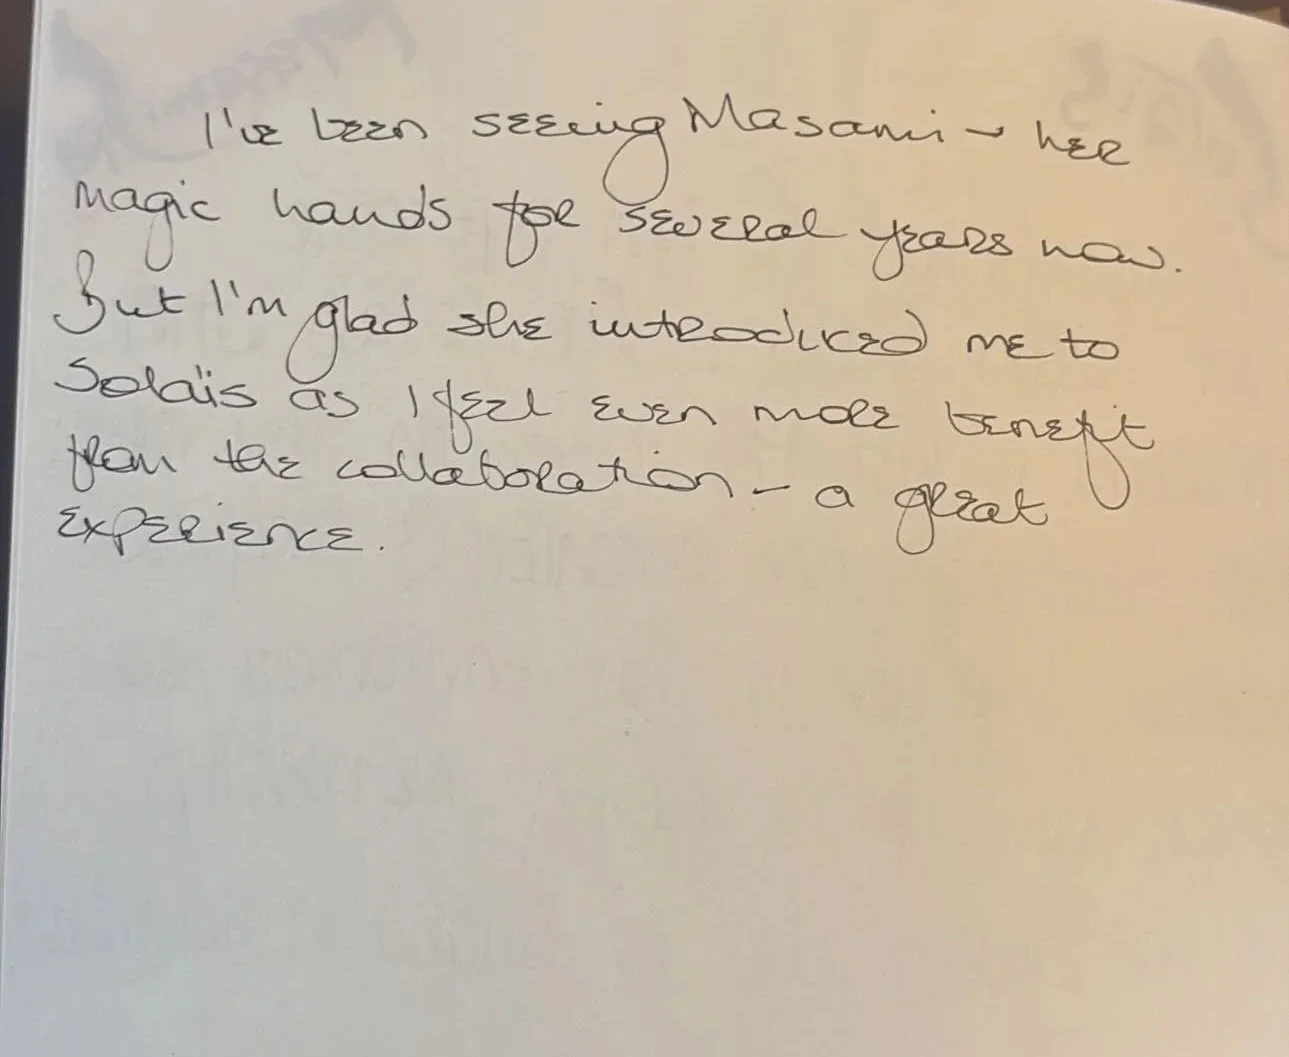 I've been seeing Masami - her
magic hands for several years now.
But I'm glad she introduced me to
Solaïs as I feel even more benefit
from the collaboration - a great
experience.